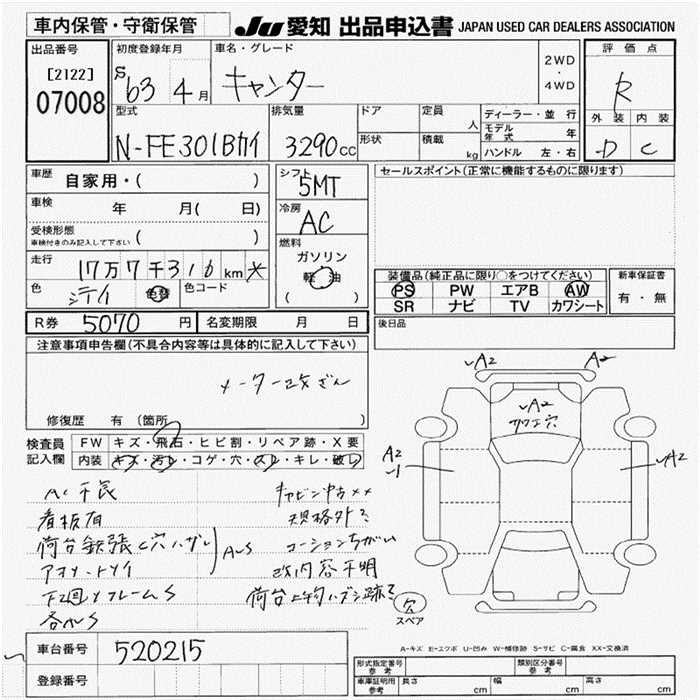 車内保管・守衛保管
JU 愛知 出品申込書 JAPAN USED CAR DEALERS ASSOCIATION
出品番号
[2122]
07008
初度登録年月
S63 4月
車名・グレード
キャンター
2WD
・
4WD
評価点
R
外装 内装
D C
型式
N-FE301Bカイ
排気量
3290cc
ドア
形状
定員 人
積載 kg
ディーラー・並行
モデル年式 年
ハンドル 左・右
車歴 自家用・( )
車検 年 月( 日)
受検形態
車検付きのみ記入して下さい ( )
走行 17万7千316km *
色 色替 色コード
シフト 5MT
冷房 AC
燃料 ガソリン
軽油
( )
セールスポイント(正常に機能するものに限ります)
装備品(純正品に限り○をつけてください)
PS PW エアB AW
SR ナビ TV カワシート
新車保証書
有・無
R券 5070円 名変期限 月 日
後日品
注意事項申告欄(不具合内容等は具体的に記入して下さい)
メーター改ざん
修復歴 有(箇所 )
検査員記入欄
FW キズ・飛石・ヒビ割・リペア跡・X要
内装 キズ・汚レ・コゲ・穴・スレ・キレ・破レ
AC不良
看板有
荷台鉄張と穴ハガレ
A~S
下回リフレームS
各所S
キャビン中古××
規格外ミ
コーションちがい
改内容不明
A2
A2
A2
穴
A2
A2
欠
スペア
A-キズ E-エクボ U-凹み W-補修跡 S-サビ C-腐食 XX-交換済
車台番号 520215
登録番号
形式指定番号 参考
類別区分番号 参考
車庫証明用 参考 長さ cm 幅 cm 高さ cm